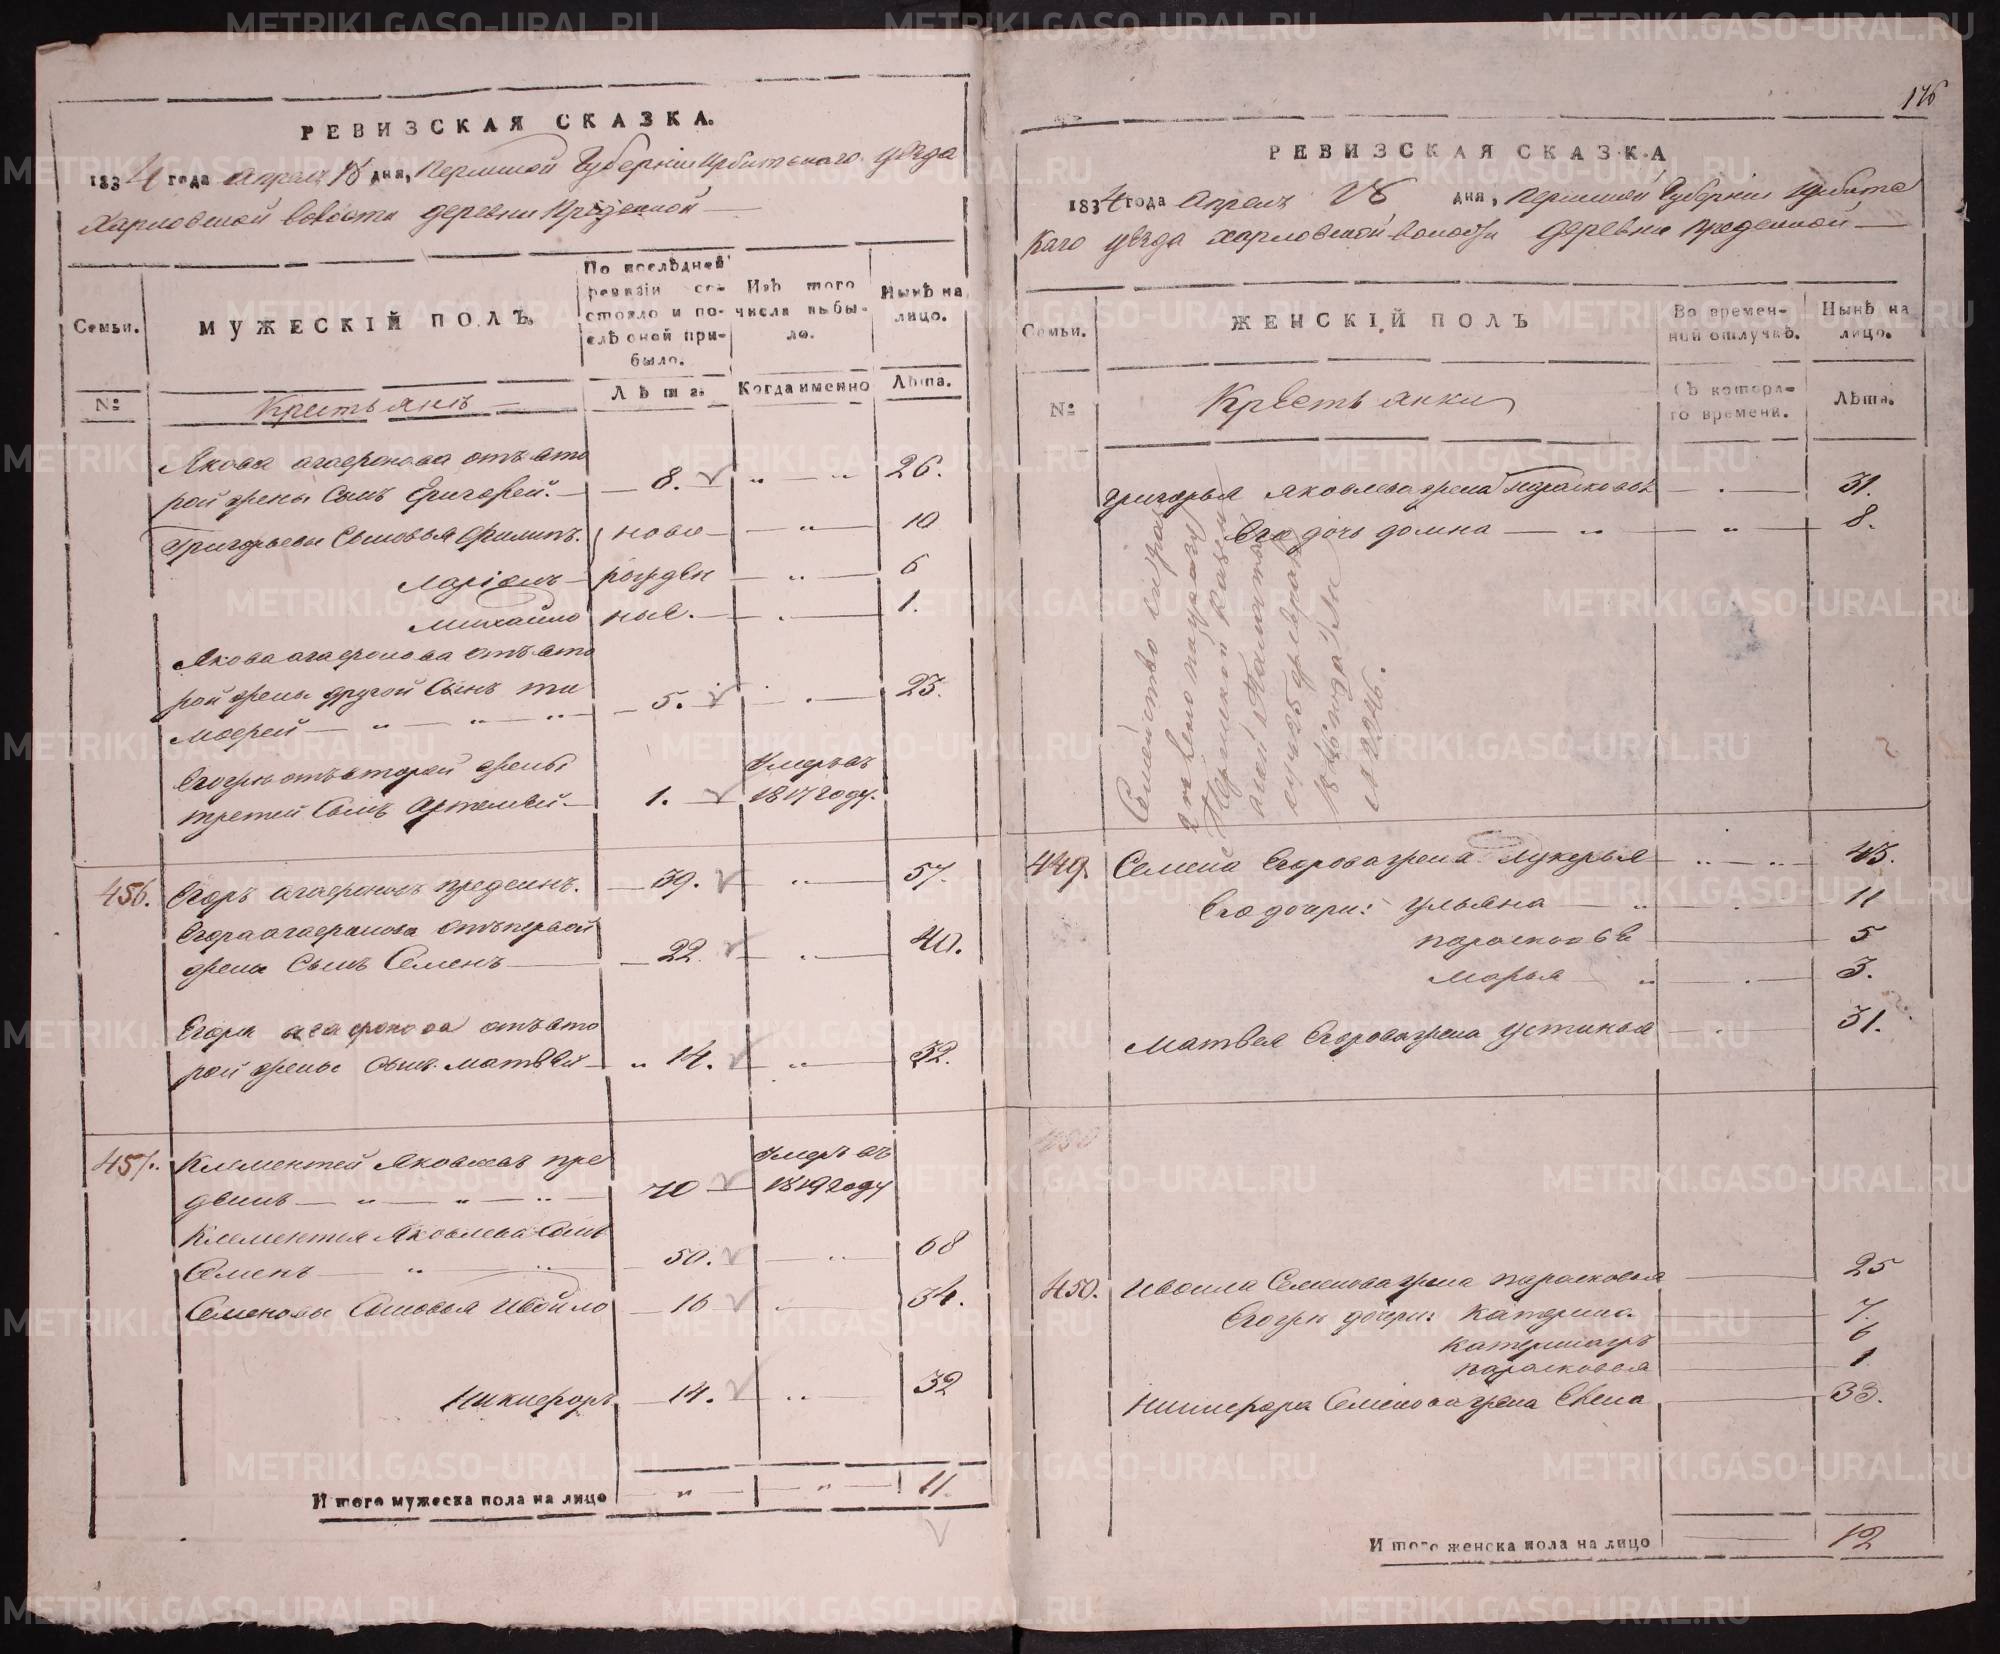 РЕВИЗСКАЯ СКАЗКА.
1834 года апреля 18 дня, Пермской Губернии Ирбитскаго уѣзда
Харловской волости деревни Прединой
Семьи.
МУЖЕСКІЙ ПОЛЪ.
По послѣдней ревизіи состояло и послѣ оной прибыло.
Изъ того числа выбыло.
Нынѣ на лицо.
№
Крестьянъ
Лѣта.
Когда именно
Лѣта.
Якова агафонова отъ вто
рой жены Сынъ Григорей. 8. 26.
Григорьевы Сыновья Филипъ. ново 10
Ларіонъ рожден 6
Михайло ные. 1.
Якова агафонова отъ вто
рой жены другой Сынъ ти
мофей 5. 23.
Егожъ отъ второй жены Умеръ въ
третей Сынъ Артемей. 1. 1817 году.
456. Егоръ агафоновъ прединъ. 39. 57.
Егора агафонова отъ первой
жены Сынъ Семенъ 22. 40.
Егора агафонова отъ вто
рой жены Сынъ матвѣй 14. 32.
457. Клементей Яковлевъ пре Умеръ въ
динъ 70 1819 году
Клементья Яковлева Сынъ
Семенъ 50. 68
Семеновы Сыновья Ивойло 16 34.
Никифоръ 14. 32
И того мужеска пола на лицо 11.
176
РЕВИЗСКАЯ СКАЗКА
1834 года апреля 18 дня, Пермской Губернии Ирбитс
каго уѣзда харловской волости деревни прединой
Семьи.
ЖЕНСКІЙ ПОЛЪ
Во временной отлучкѣ.
Нынѣ на лицо.
№
Крестьянки
Съ котораго времени.
Лѣта.
Григорья Яковлева жена Парасковья 31.
Его дочь домна 8.
Семейство
Пермской Казен
25 февраля
1846 года
№ 2246.
449. Семена Егорова жена Лукерья 43.
Его дочери: Ульяна 11
парасковья 5
марья 3.
Матвея Егорова жена Устинья 31.
450. Ивоила Семенова жена парасковья 25
Егожъ дочери: Катерина. 7.
Катеринажъ 6
парасковья 1
Никифора Семенова жена Елена 33.
И того женска пола на лицо 12
METRIKI.GASO-URAL.RU